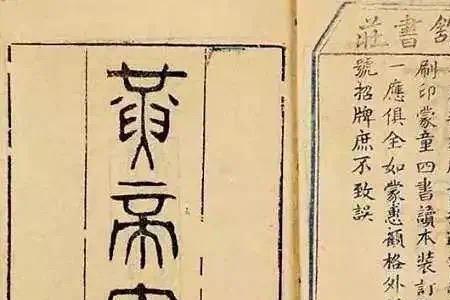 書莊
刷印蒙童四書讀本裝訂
一應俱全如蒙惠顧格外
號招牌庶不致誤
黃帝